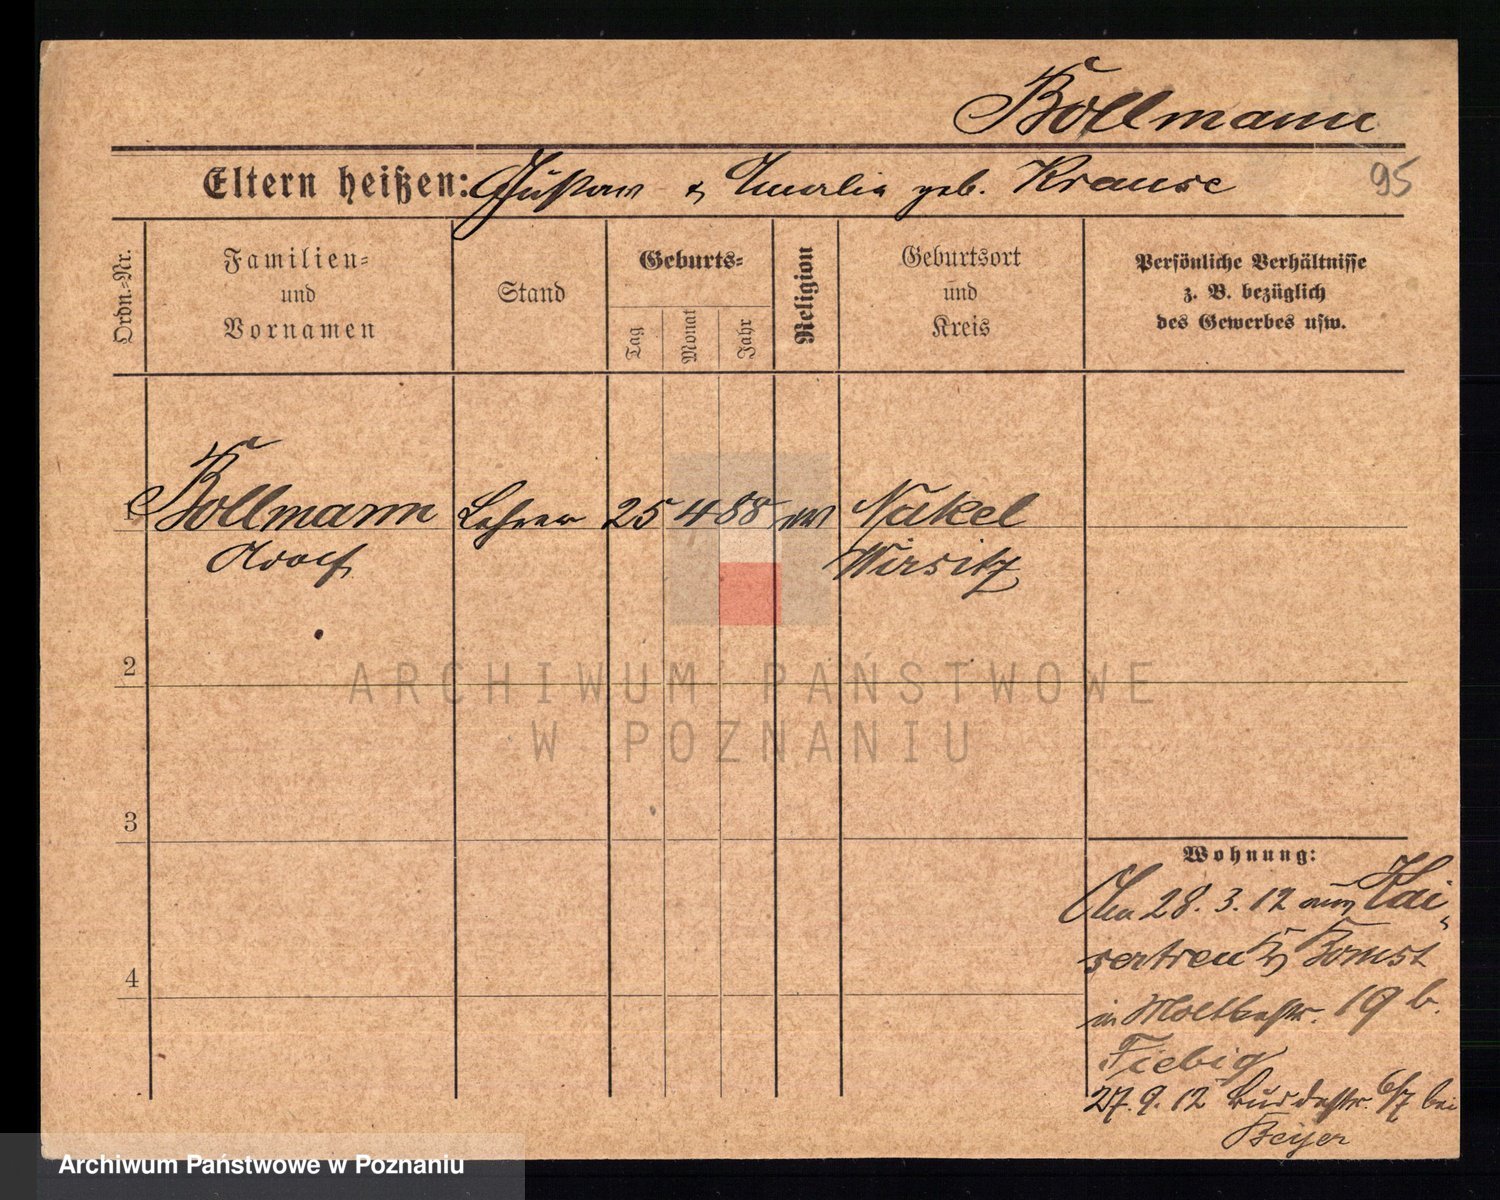 Bollmann
Eltern heißen: Gustav & Amalia geb. Krause
95
Ordn.-Nr.
Familien-
und
Vornamen
Stand
Geburts-
Tag
Monat
Jahr
Religion
Geburtsort
und
Kreis
Persönliche Verhältnisse
z. B. bezüglich
des Gewerbes usw.
1 Bollmann Lehrer 25 4 88 ev Nakel
Adolf Wirsitz
2
ARCHIWUM PAŃSTWOWE
W POZNANIU
3
Wohnung:
28. 3. 12 aus Kai-
sertreu Kr Bomst
in Moltkestr. 19 b.
Fiebig
4
27. 9. 12 6/7 bei
Beyer
Archiwum Państwowe w Poznaniu